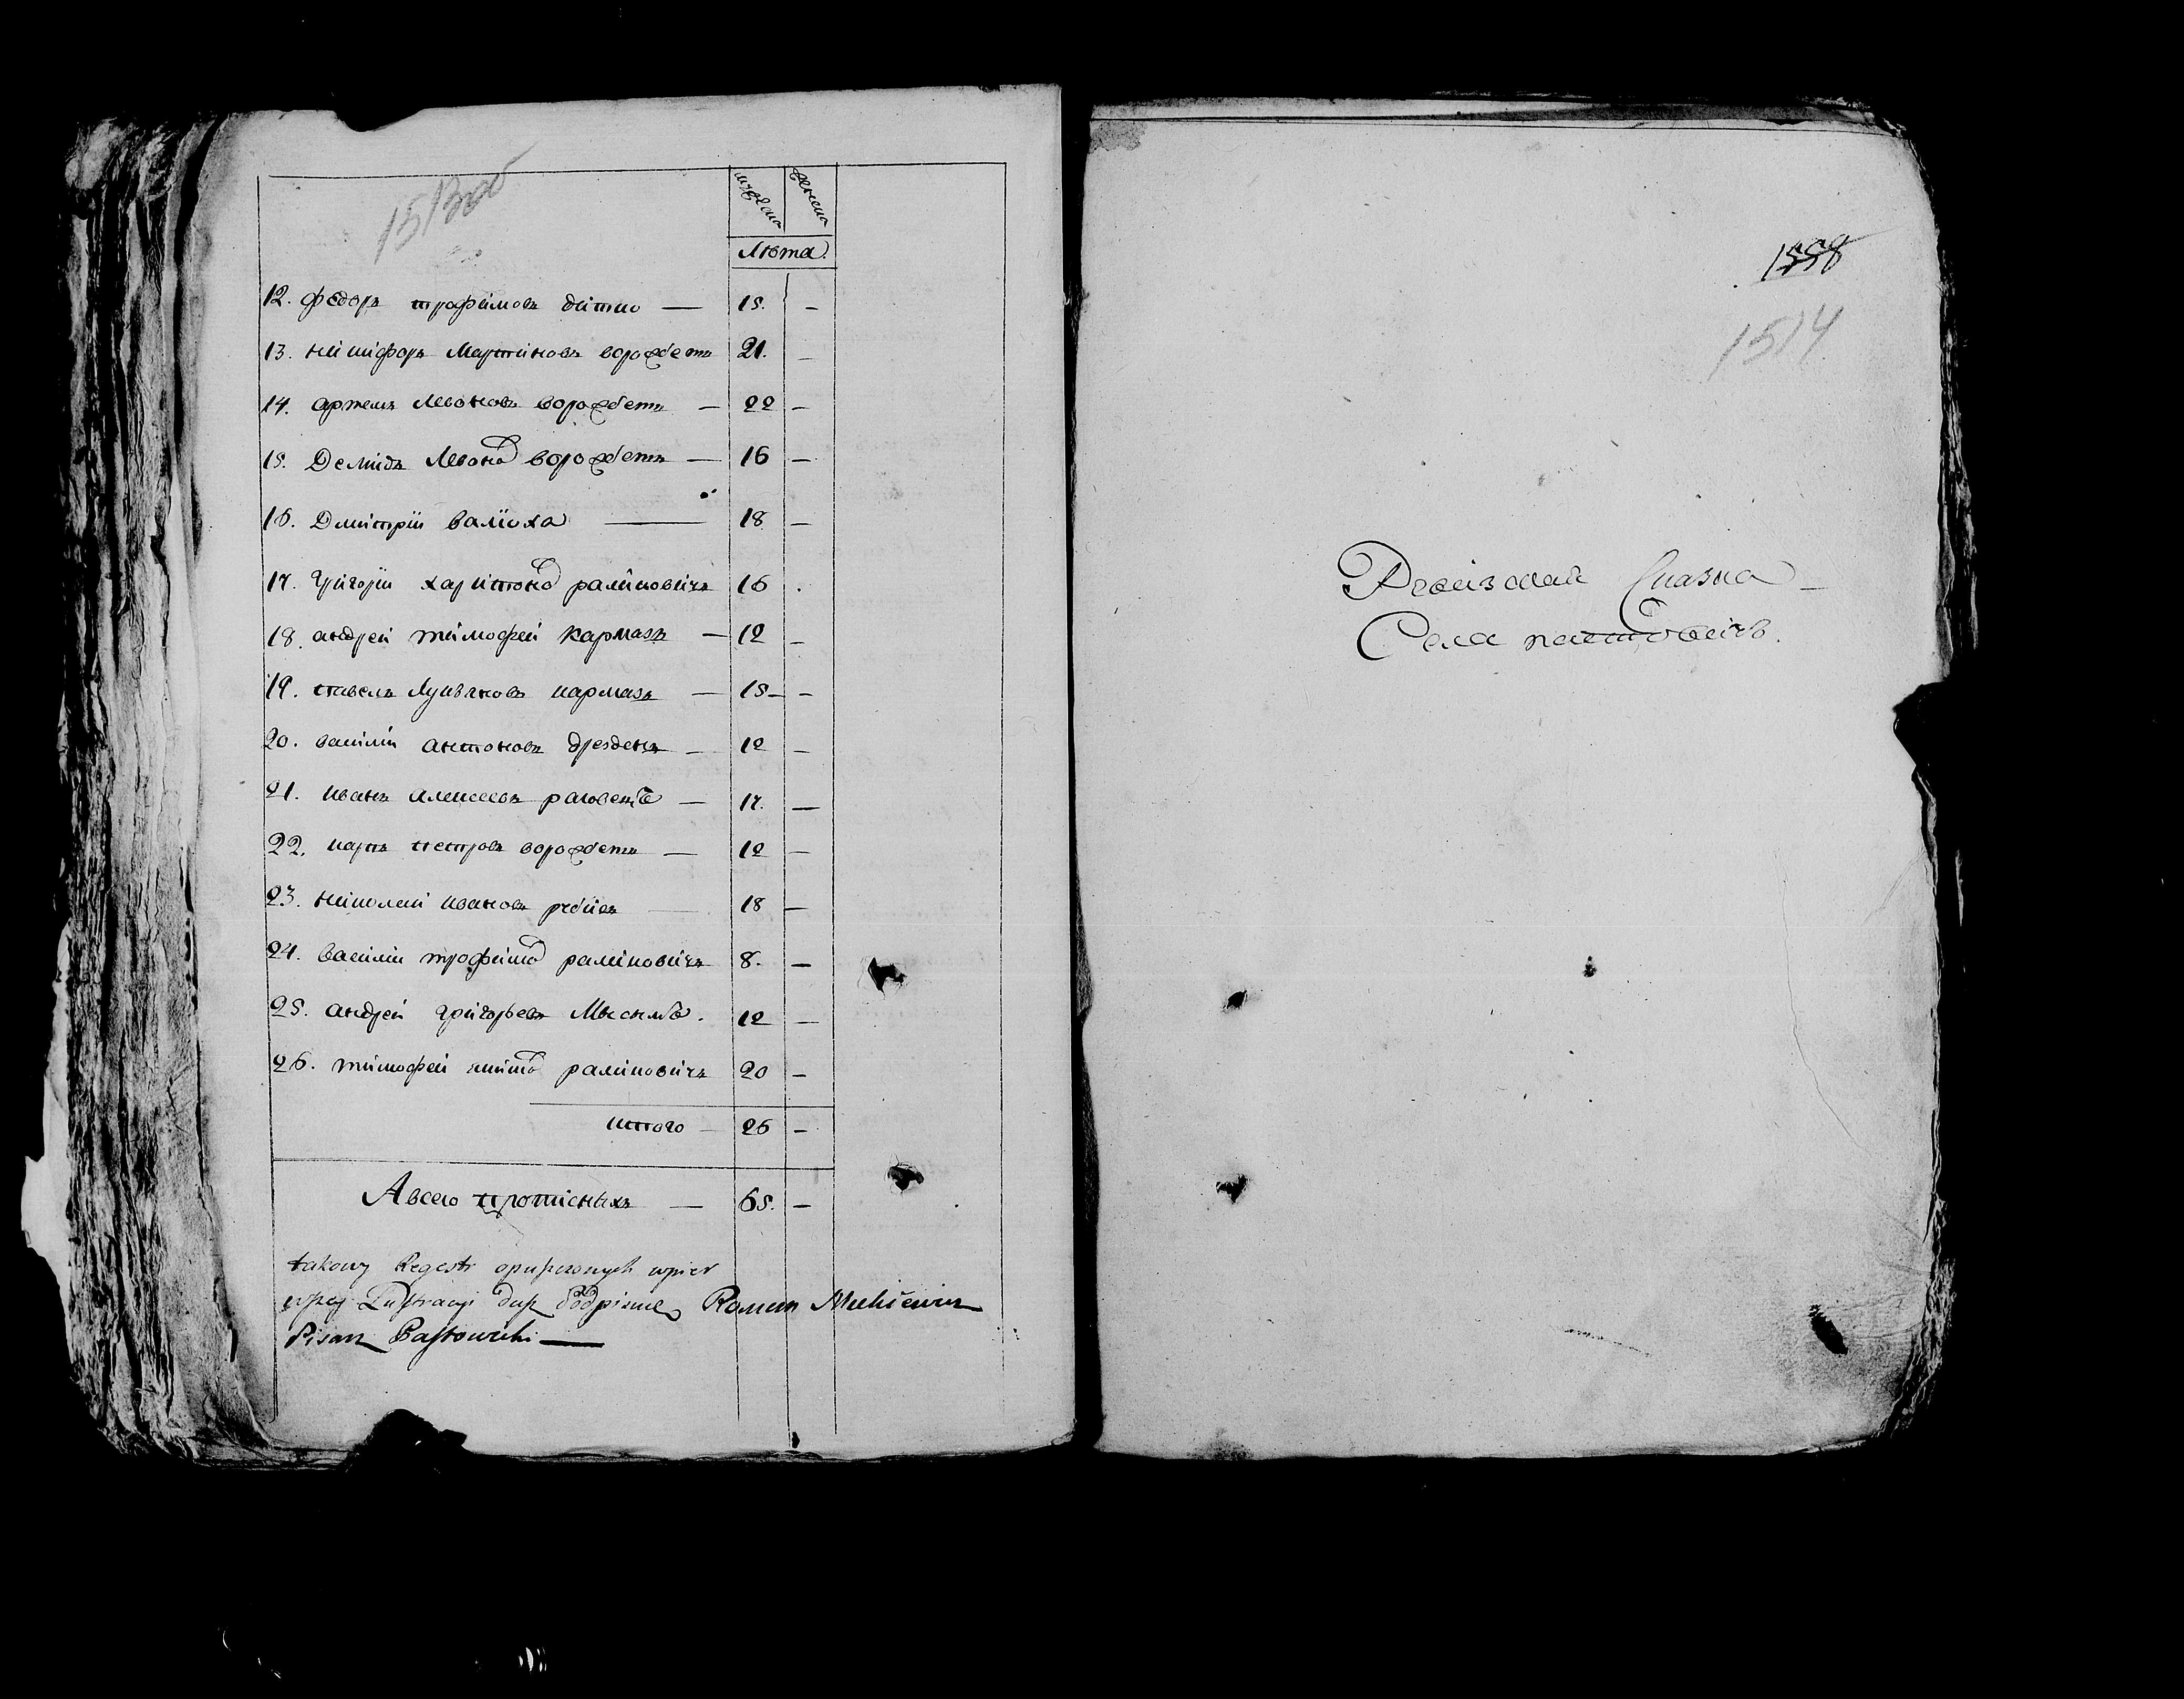 1513 об
мужска женска
Лѣта
12. федоръ трофимовъ дитко — 15. —
13. никифоръ Мартиновъ ворожбетъ 21. —
14. артемъ Левоновъ ворожбетъ — 22 —
15. Демидъ Левоно ворожбетъ — 16 —
16. Дмитрїй валюха — 18 —
17. григорїй харитоно ралиновичъ 16 .
18. андрей тимофей кармазъ — 12 —
19. павелъ Лукяновъ кармазъ — 15 — —
20. василїй антоновъ дрезденъ — 12 —
21. иванъ алексеевъ — 17. —
22. карпъ петровъ ворожбетъ — 12 —
23. николай ивановъ — 18 —
24. василїй трофимо ралиновичъ 8. —
25. андрей григорьевъ . 12 —
26. тимофей ралиновичъ 20 —
итого — 26 —
Авсего прописныхъ — 65. —
takowy Regestr opuszczonych wpier
wszej Lustracyi dusz Podpisuię Roman
Pisarz Pastowicki —
1558
1514
Ревизская Сказка —
Села пастовичъ.